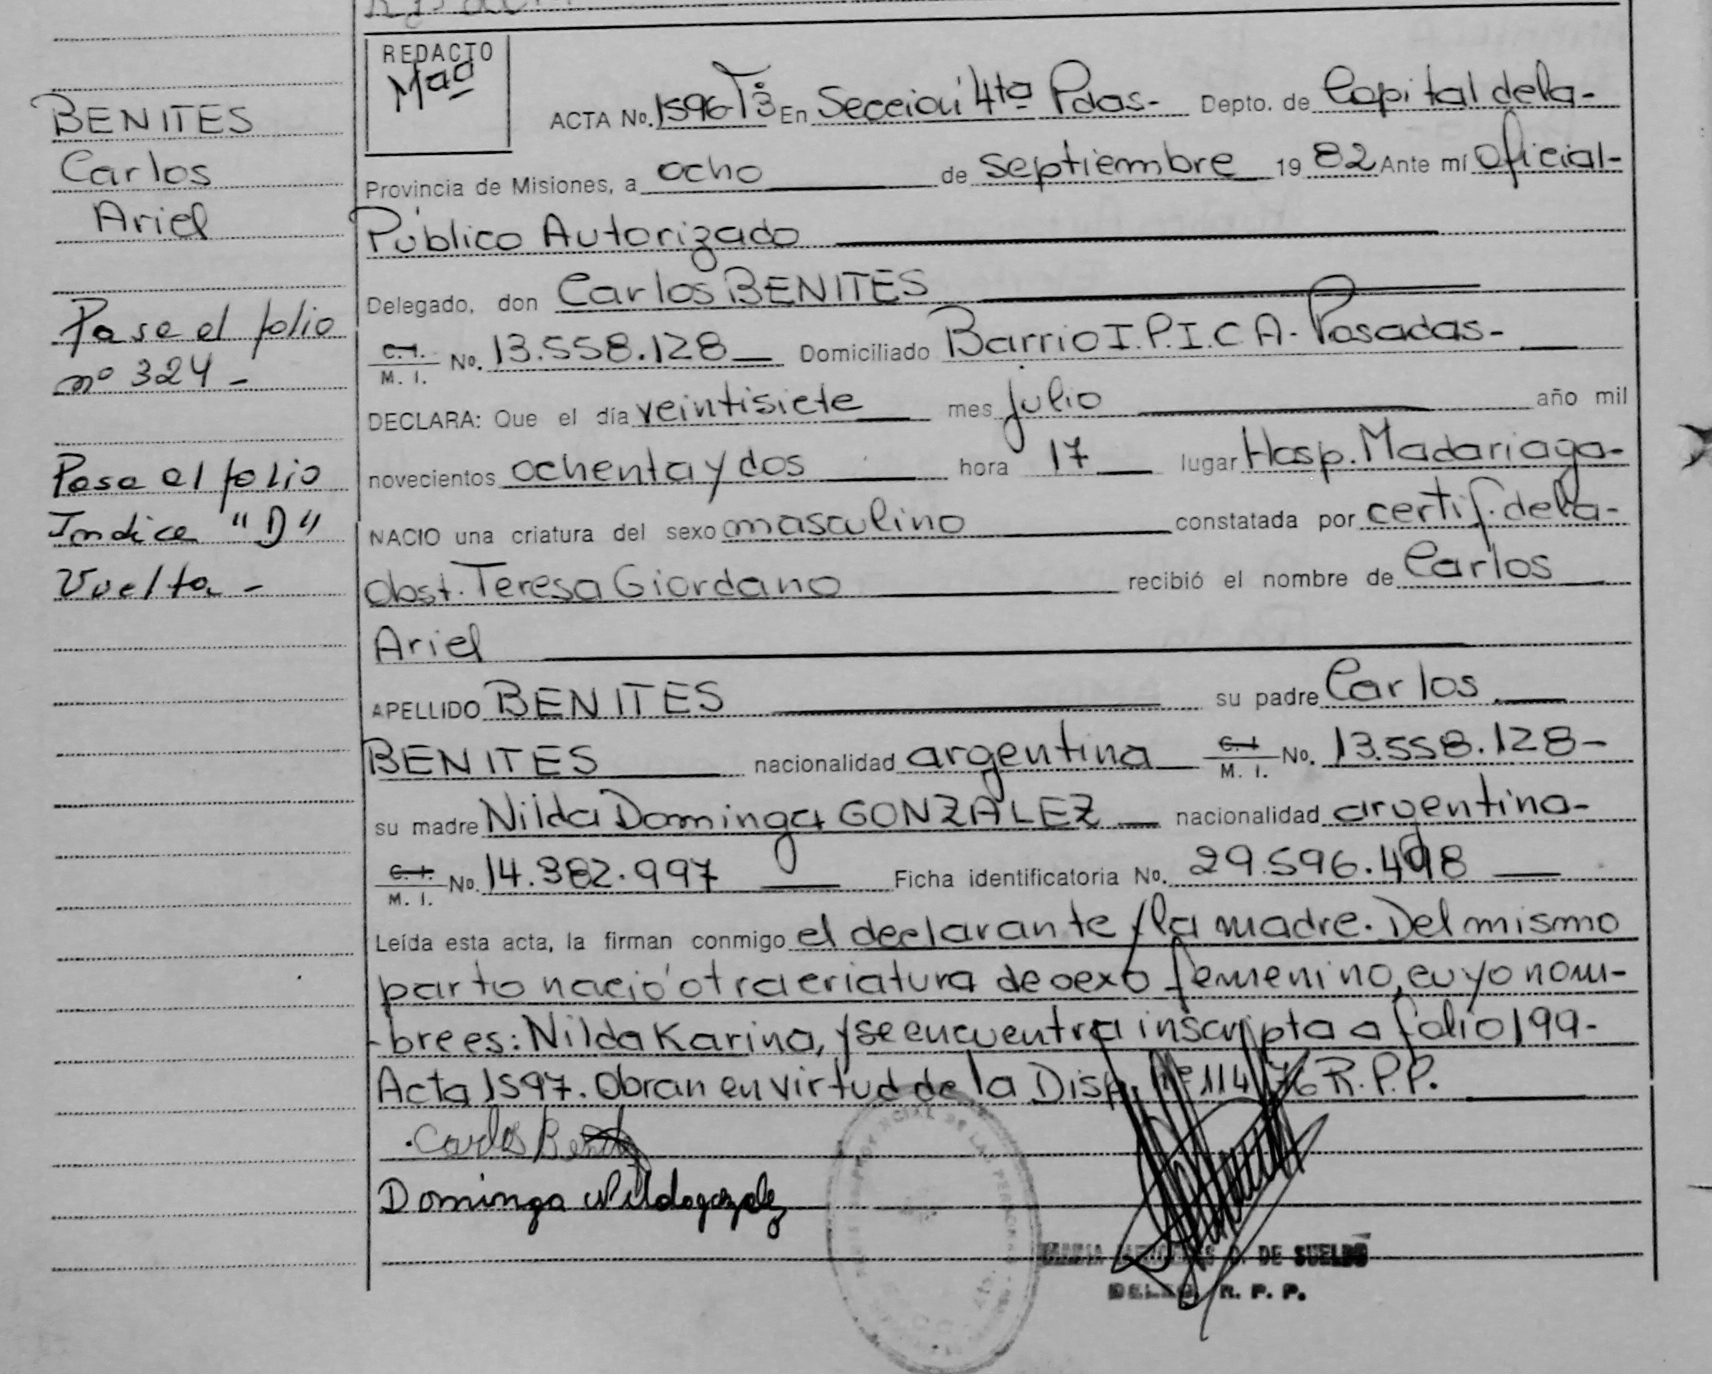 BENITES
Carlos
Ariel
Pase el folio
nº 324 -
Pase el folio
Indice "D"
Vuelta -
REDACTO
Maa
ACTA No. 1596 Tº3 En Sección 4ta Pdas.- Depto. de Capital de la-
Provincia de Misiones, a ocho de septiembre 1982 Ante mí Oficial-
Público Autorizado
Delegado, don Carlos BENITES
C.I. M. I. No. 13.558.128 Domiciliado Barrio I.P.I.C A- Posadas-
DECLARA: Que el día veintisiete mes julio año mil
novecientos ochenta y dos hora 17 lugar Hosp. Madariaga-
NACIO una criatura del sexo masculino constatada por certif. de la-
obst. Teresa Giordano recibió el nombre de Carlos
Ariel
APELLIDO BENITES su padre Carlos
BENITES nacionalidad argentina C.I. M. I. No. 13.558.128-
su madre Nilda Dominga GONZALEZ nacionalidad argentina-
C.I. M. I. No. 14.382.997 Ficha identificatoria No. 29.596.498
Leída esta acta, la firman conmigo el declarante y la madre. Del mismo
parto nació otra criatura de sexo femenino, cuyo nom-
-bre es: Nilda Karina, y se encuentra inscripta a folio 199-
Acta 1597. Obran en virtud de la Disp. nº 114/76 R.P.P.
Carlos Benites
Dominga Nilda gozalez
DE SUELDO
R. P. P.